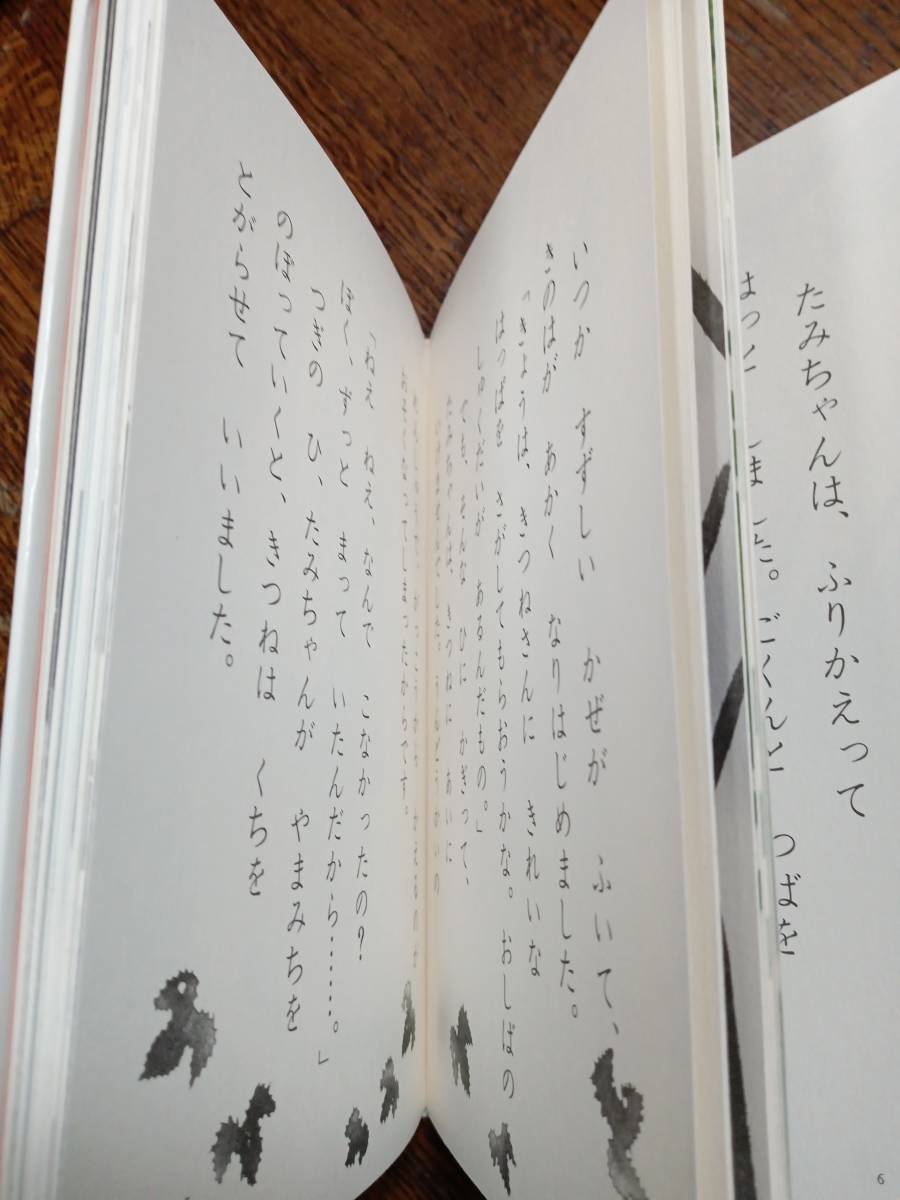 たみちゃんは、ふりかえって
つばを
6
いつか すずしい かぜが ふいて、
きのはが あかく なりはじめました。
「きょうは、きつねさんに きれいな
はっぱを さがしてもらおうかな。おしばの
しゅくだいが あるんだもの。」
でも、そんな ひに かぎって、
たみちゃんは、きつねに あいに
「ねえ ねえ、なんで こなかったの?
ぼく、ずっと まって いたんだから……。」
つぎの ひ、たみちゃんが やまみちを
のぼっていくと、きつねは くちを
とがらせて いいました。